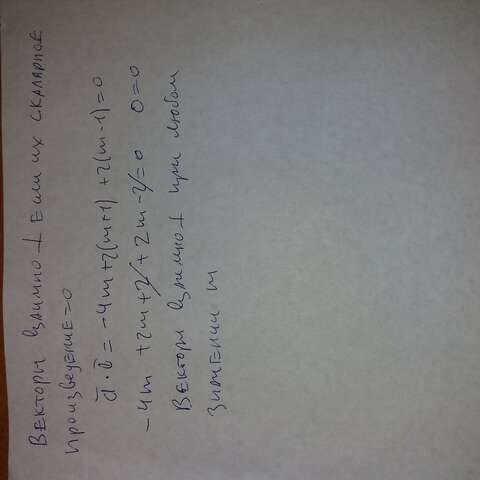 Векторы взаимно ⊥ если их скалярное
произведение=0
d̄·ī = -4m+2(m+1)+2(m-1)=0
-4m+2m+2+2m-2=0 0=0
Векторы взаимно ⊥ при любом
значении m